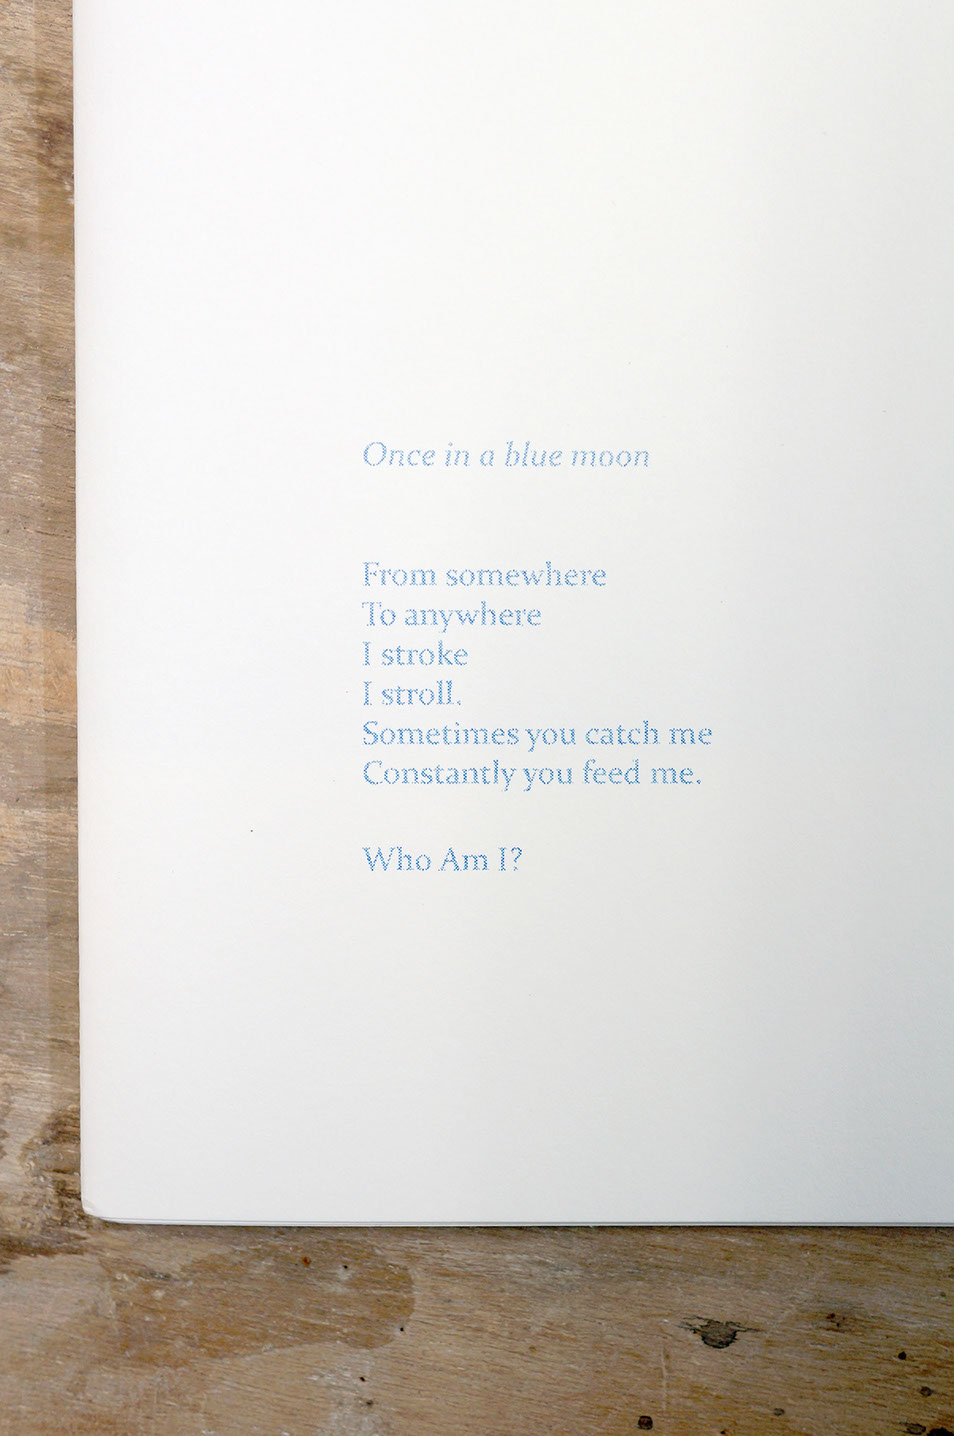 Once in a blue moon
From somewhere
To anywhere
I stroke
I stroll.
Sometimes you catch me
Constantly you feed me.
Who Am I?